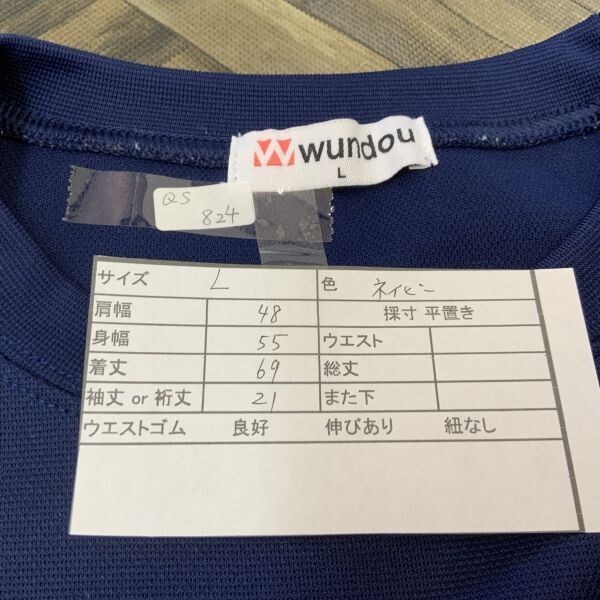 wundou
L
QS
824
サイズ L 色 ネイビー
肩幅 48 採寸 平置き
身幅 55 ウエスト
着丈 69 総丈
袖丈 or 裄丈 21 また下
ウエストゴム 良好 伸びあり 紐なし